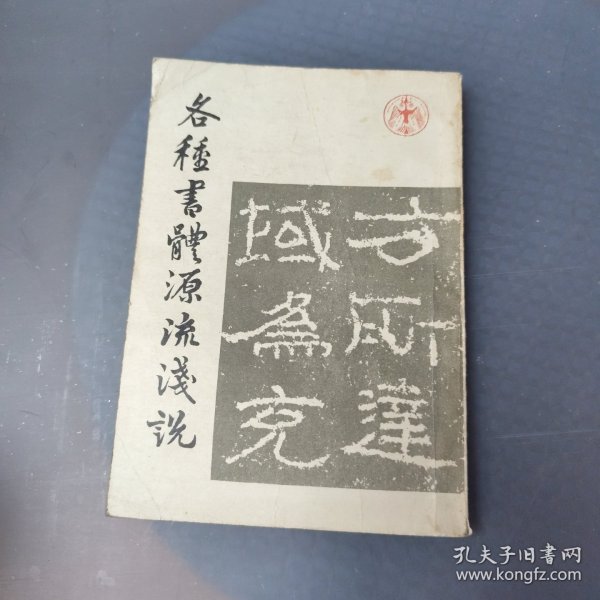 各種書體源流淺說
方所達
域為克
孔夫子旧书网
www.kongfz.com